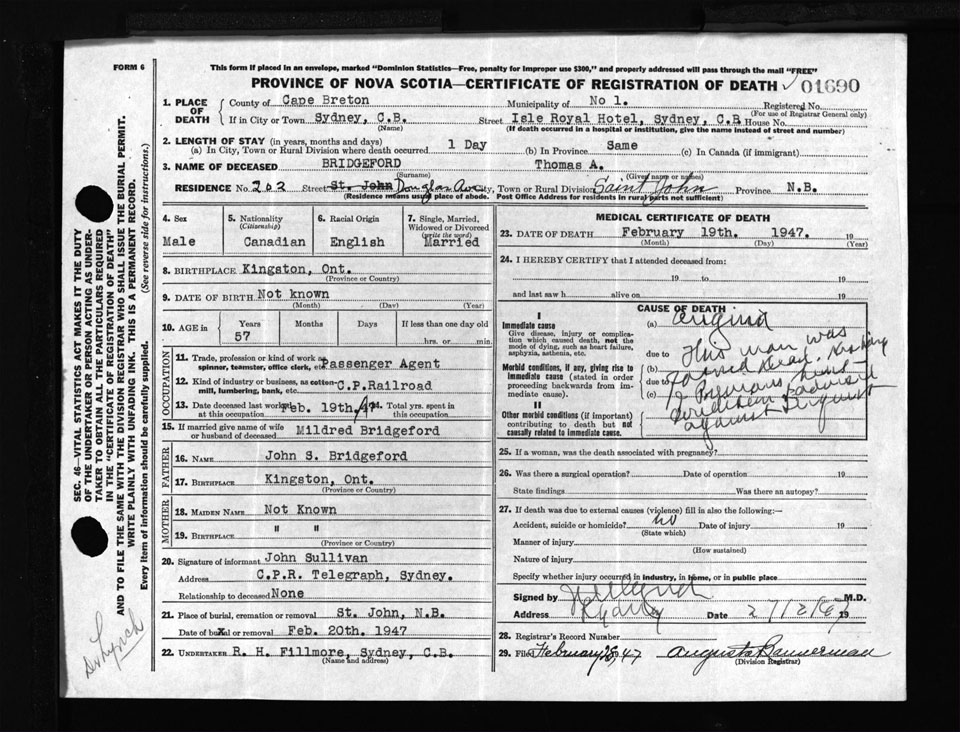 FORM 6
This form if placed in an envelope, marked "Dominion Statistics—Free, penalty for improper use $300," and properly addressed will pass through the mail "FREE"
PROVINCE OF NOVA SCOTIA—CERTIFICATE OF REGISTRATION OF DEATH 01690
1. PLACE OF DEATH
County of Cape Breton Municipality of No 1. Registered No.
(For use of Registrar General only)
If in City or Town Sydney, C.B. Street Isle Royal Hotel, Sydney, C.B. House No.
(Name) (If death occurred in a hospital or institution, give the name instead of street and number)
2. LENGTH OF STAY (in years, months and days)
(a) In City, Town or Rural Division where death occurred 1 Day (b) In Province Same (c) In Canada (if immigrant)
3. NAME OF DECEASED BRIDGEFORD Thomas A.
(Surname) (Given name or names)
RESIDENCE No. 202 Street St. John Douglas Ave City, Town or Rural Division Saint John Province N.B.
(Residence means usual place of abode. Post Office Address for residents in rural parts not sufficient)
4. Sex Male
5. Nationality (Citizenship) Canadian
6. Racial Origin English
7. Single, Married, Widowed or Divorced (write the word) Married
8. BIRTHPLACE Kingston, Ont.
(Province or Country)
9. DATE OF BIRTH Not known
(Month) (Day) (Year)
10. AGE in Years Months Days If less than one day old
57 hrs. or min.
OCCUPATION
11. Trade, profession or kind of work as spinner, teamster, office clerk, etc. Passenger Agent
12. Kind of industry or business, as cotton mill, lumbering, bank, etc. C.P.Railroad
13. Date deceased last worked at this occupation Feb. 19th, 47 14. Total yrs. spent in this occupation
15. If married give name of wife or husband of deceased Mildred Bridgeford
FATHER
16. NAME John S. Bridgeford
17. BIRTHPLACE Kingston, Ont.
(Province or Country)
MOTHER
18. MAIDEN NAME Not Known
19. BIRTHPLACE " "
(Province or Country)
20. Signature of informant John Sullivan
Address C.P.R. Telegraph, Sydney.
Relationship to deceased None
21. Place of burial, cremation or removal St. John, N.B.
Date of burial or removal Feb. 20th. 1947
22. UNDERTAKER R. H. Fillmore, Sydney, C.B.
(Name and address)
MEDICAL CERTIFICATE OF DEATH
23. DATE OF DEATH February 19th. 1947. 19
(Month) (Day) (Year)
24. I HEREBY CERTIFY that I attended deceased from:
19 to 19
and last saw h alive on 19
CAUSE OF DEATH
I
Immediate cause
Give disease, injury or complication which caused death, not the mode of dying, such as heart failure, asphyxia, asthenia, etc.
(a) Angina
due to
This man was
Morbid conditions, if any, giving rise to immediate cause (stated in order proceeding backwards from immediate cause).
(b)
due to
(c)
found dead.
II
Other morbid conditions (if important) contributing to death but not causally related to immediate cause.
against
25. If a woman, was the death associated with pregnancy?
26. Was there a surgical operation? Date of operation 19
State findings Was there an autopsy?
27. If death was due to external causes (violence) fill in also the following:—
Accident, suicide or homicide? no Date of injury 19
(State which)
Manner of injury
(How sustained)
Nature of injury
Specify whether injury occurred in industry, in home, or in public place
Signed by M.D.
Address Sydney Date 27/2/47 19
28. Registrar's Record Number
29. Filed February 28, 47 Augusta Bannerman
(Division Registrar)
SEC. 46—VITAL STATISTICS ACT MAKES IT THE DUTY
OF THE UNDERTAKER OR PERSON ACTING AS UNDER-
TAKER TO OBTAIN ALL THE PARTICULARS REQUIRED
IN THE "CERTIFICATE OF REGISTRATION OF DEATH"
AND TO FILE THE SAME WITH THE DIVISION REGISTRAR WHO SHALL ISSUE THE BURIAL PERMIT.
WRITE PLAINLY WITH UNFADING INK. THIS IS A PERMANENT RECORD.
Every item of information should be carefully supplied. (See reverse side for instructions.)
Dr Lynch